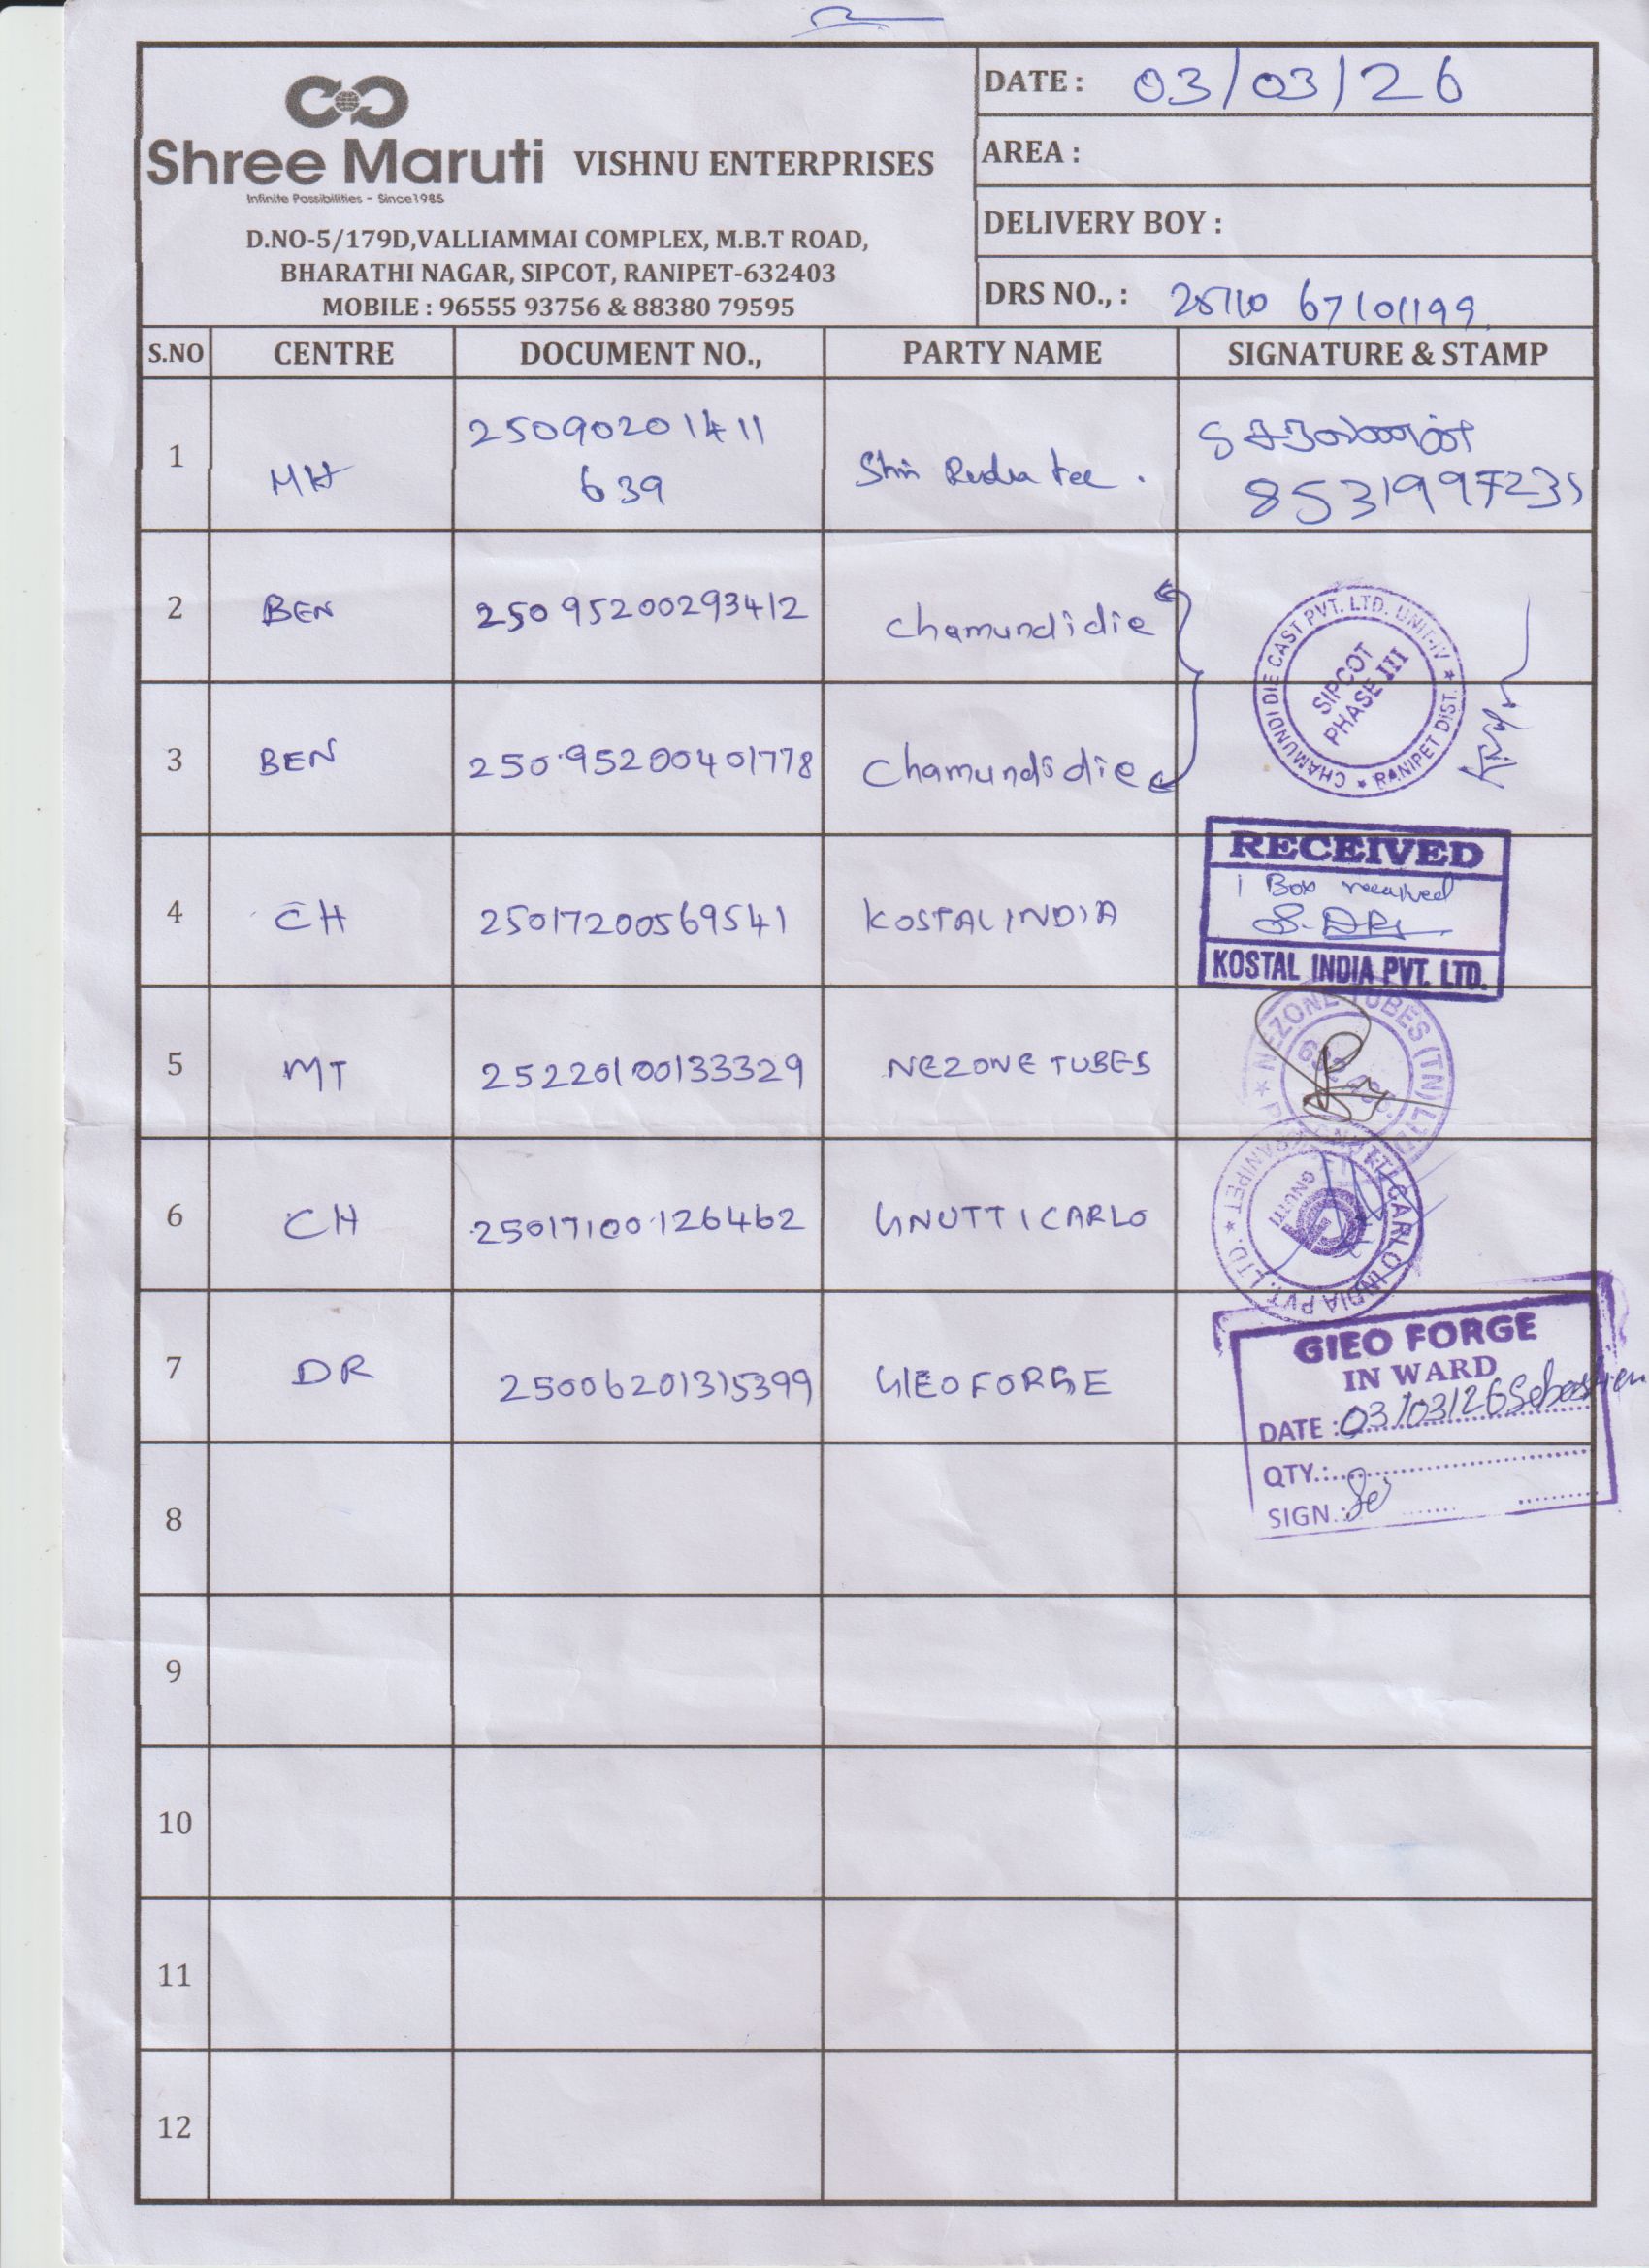 Shree Maruti
Infinite Possibilities - Since1985
VISHNU ENTERPRISES
D.NO-5/179D,VALLIAMMAI COMPLEX, M.B.T ROAD,
BHARATHI NAGAR, SIPCOT, RANIPET-632403
MOBILE : 96555 93756 & 88380 79595
DATE : 03/03/26
AREA :
DELIVERY BOY :
DRS NO., : 25710 67101199
S.NO CENTRE DOCUMENT NO., PARTY NAME SIGNATURE & STAMP
1 MH 25090201411
639
8531997235
2 BEN 25095200293412 Chamundi die
3 BEN 25095200401778 Chamundi die
CHAMUNDI DIE CAST PVT. LTD. UNIT-IV ★ RANIPET DIST. ★
SIPCOT
PHASE III
4 CH 25017200569541 KOSTAL INDIA
RECEIVED
1 Box received
KOSTAL INDIA PVT. LTD.
5 MT 25220100133329 NEZONE TUBES
★ NEZONE TUBES (TN) LTD
6 CH 25017100126462 GNUTTI CARLO
GNUTTI CARLO INDIA PVT. LTD. ★ RANIPET ★
GNUTTI
7 DR 25006201315399 GIEO FORGE
GIEO FORGE
IN WARD
DATE : 03/03/26 Sebastien
QTY.:
SIGN.:
8
9
10
11
12